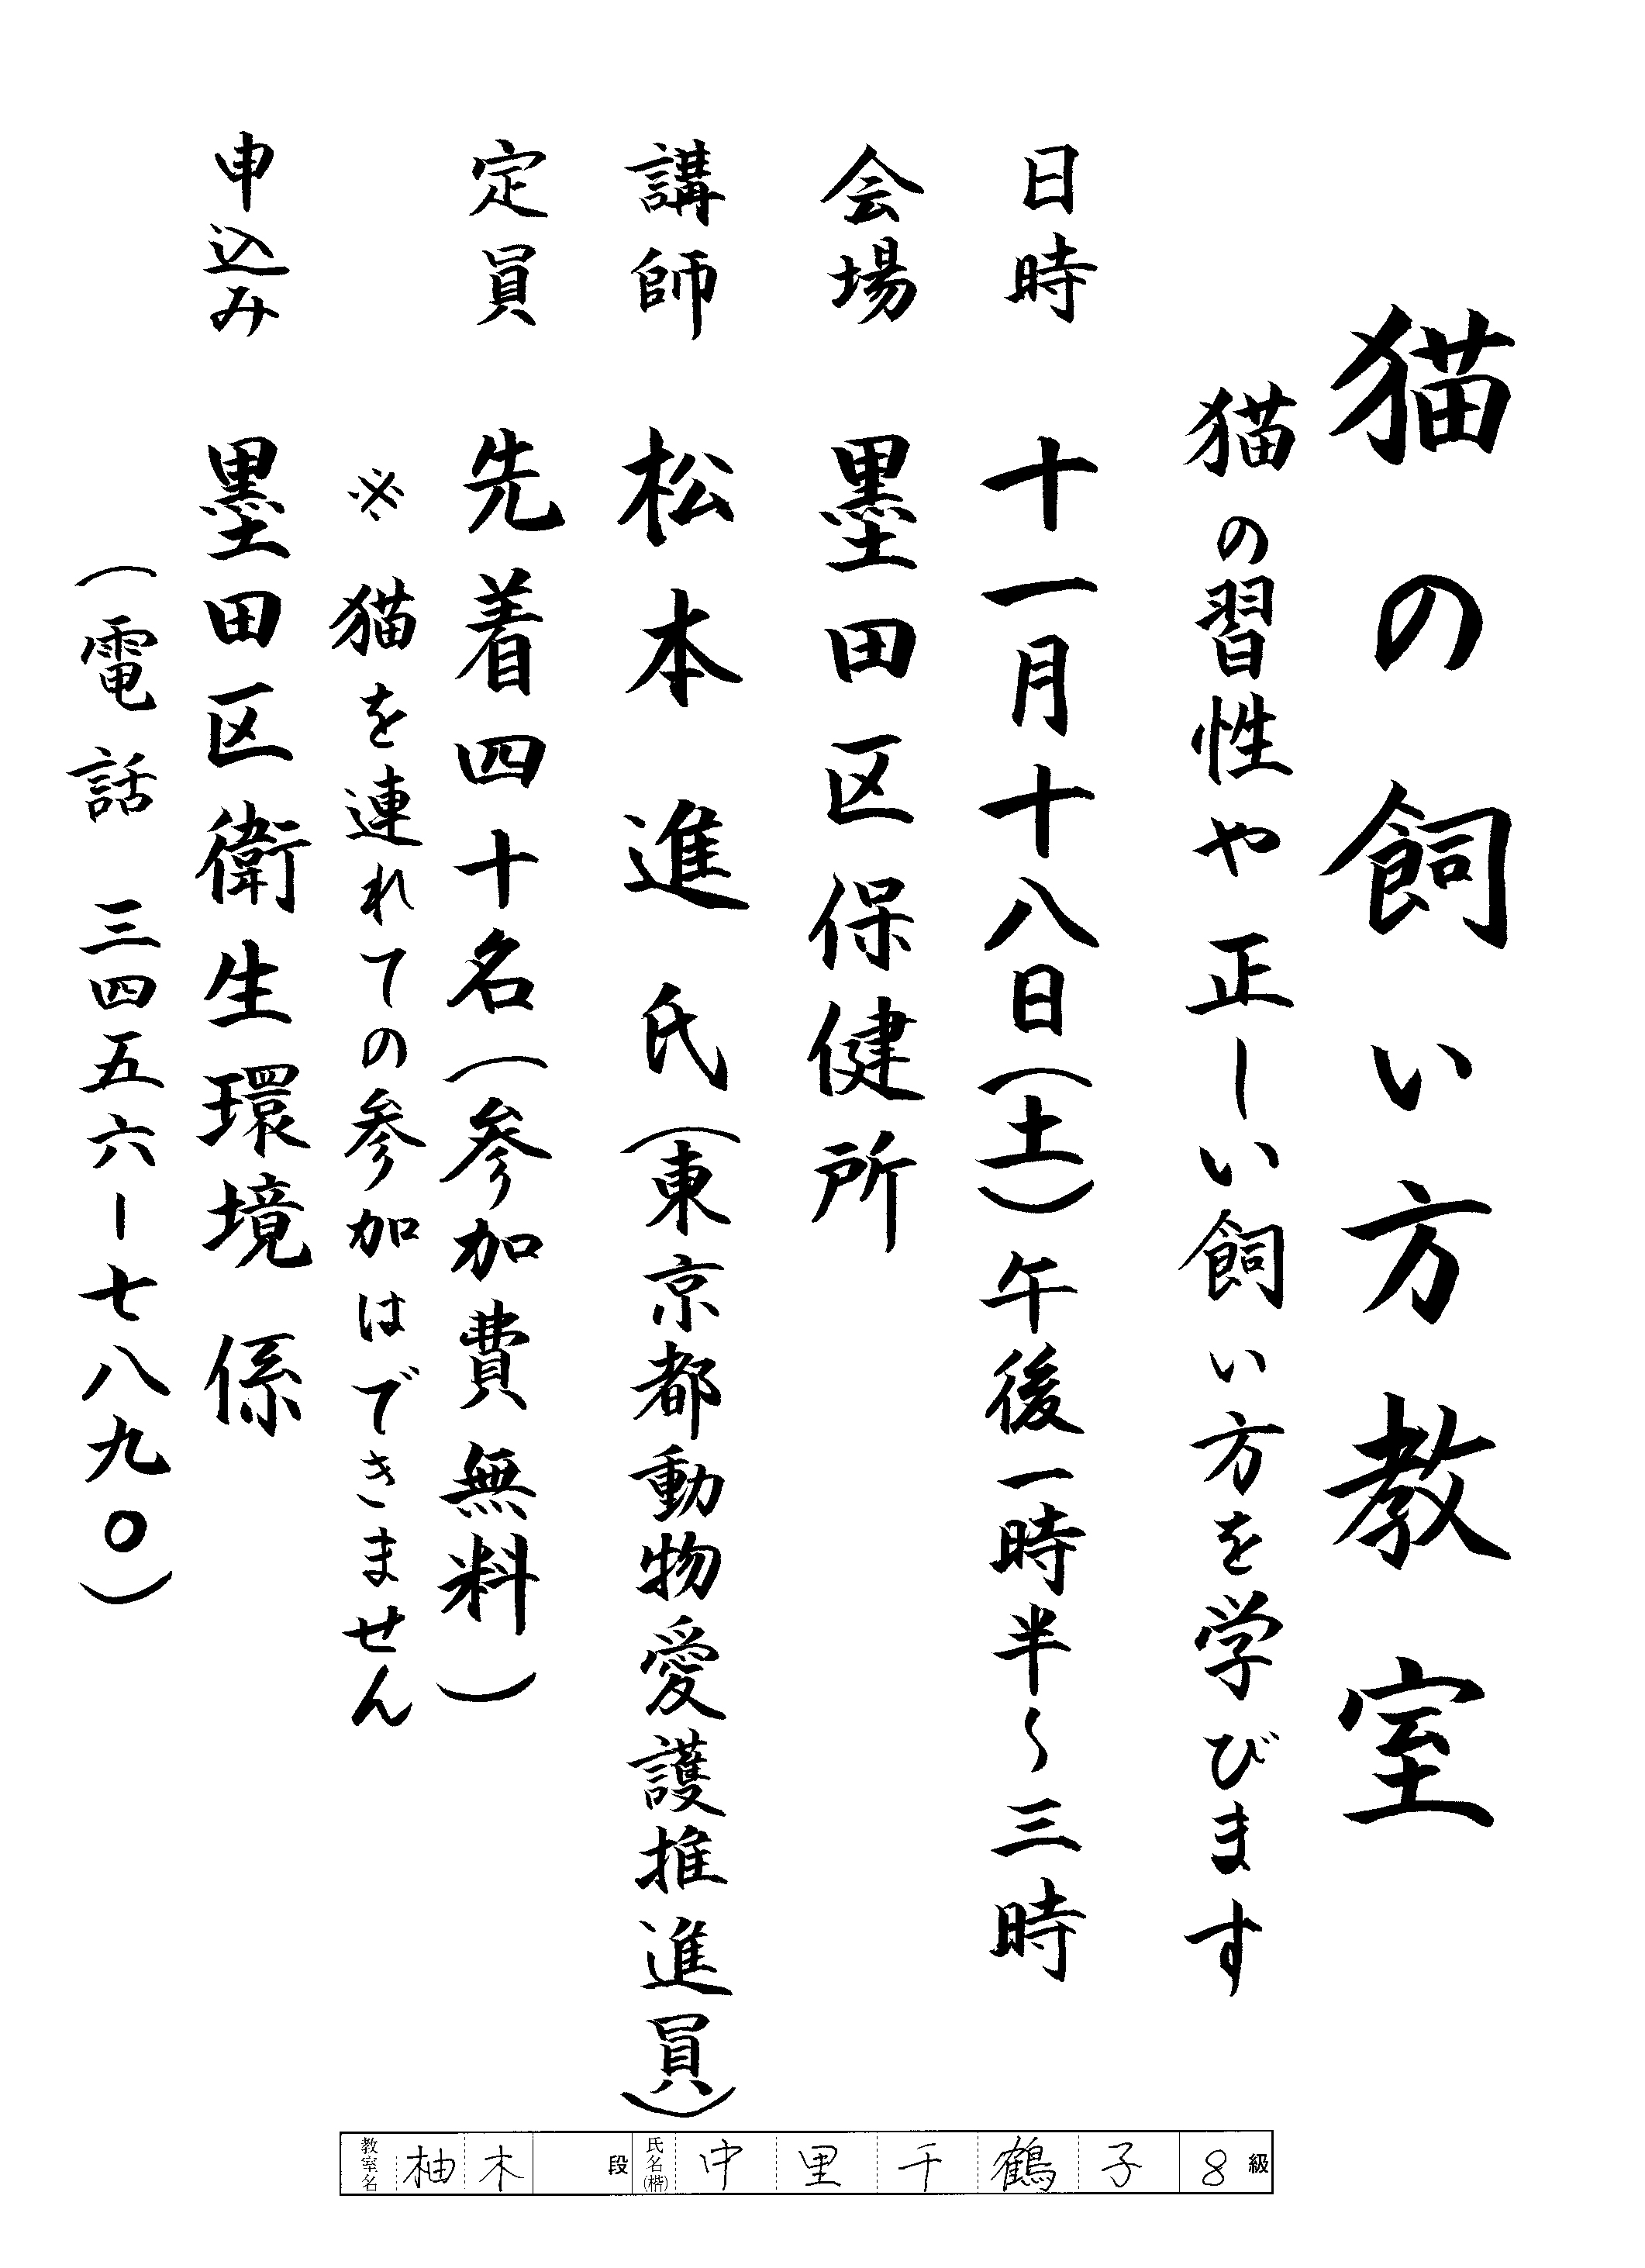 猫の飼い方教室
猫の習性や正しい飼い方を学びます
日時 十一月十八日(土)午後一時半〜三時
会場 墨田区保健所
講師 松本進氏(東京都動物愛護推進員)
定員 先着四十名(参加費無料)
※猫を連れての参加はできません
申込み 墨田区衛生環境係
(電話 三四五六ー七八九〇)
教室名 柚木 段 氏名(楷) 中里千鶴子 8級